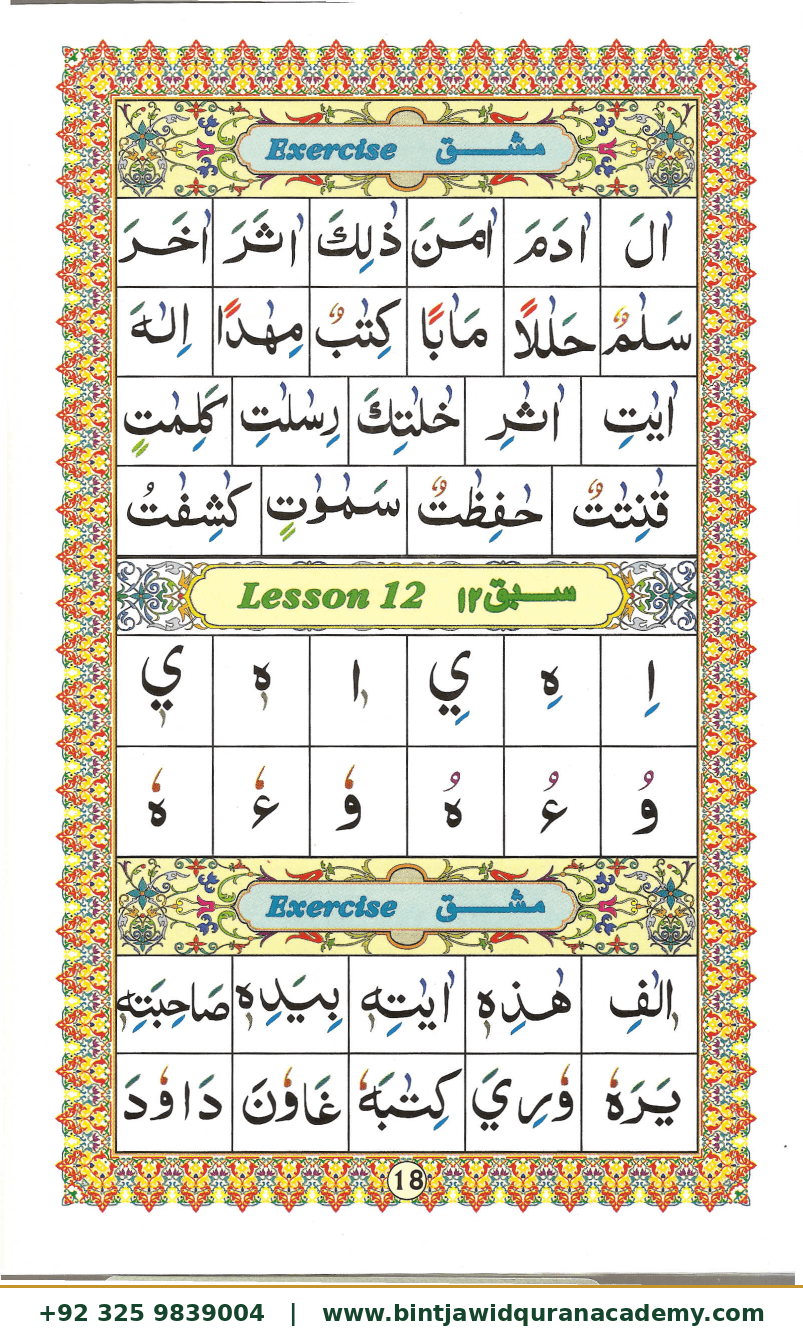 Exercise مشق
اٰلَ اٰدَمَ اٰمَنَ ذٰلِكَ اٰثَرَ اٰخَرَ
سَلٰمٌ حَلٰلًا مَاٰبًا كِتٰبٌ مِهٰدًا اِلٰهَ
اٰيٰتِ اٰثٰرِ خٰلٰتِكَ رِسٰلٰتِ كَلِمٰتٍ
قٰنِتٰتٌ حٰفِظٰتٌ سَمٰوٰتٍ كٰشِفٰتُ
Lesson 12 سبق ١٢
اِ هِ يِ اٖ هٖ يٖ
وُ ءُ هُ وٗ ءٗ هٗ
Exercise مشق
اٖلٰفِ هٰذِهٖ اٰيٰتِهٖ بِيَدِهٖ صَاحِبَتِهٖ
يَرَهٗ وٗرِيَ كِتٰبَهٗ غَاوٗنَ دَاوٗدَ
18
+92 325 9839004 | www.bintjawidquranacademy.com